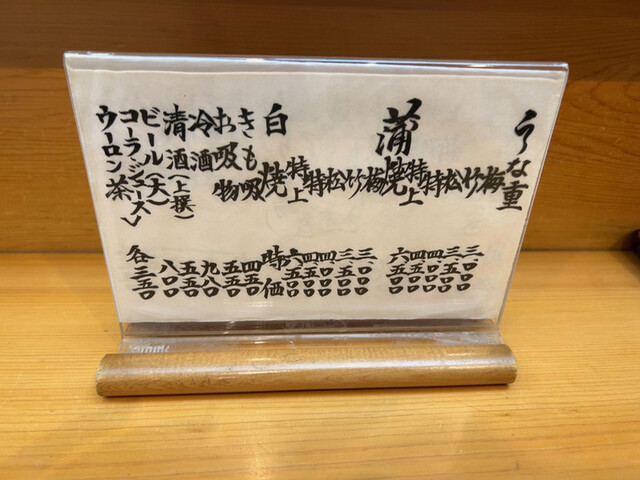 うな重
梅 三、〇〇〇
竹 三、五〇〇
松 四、〇〇〇
特 四、五〇〇
特上 六、五〇〇
蒲焼
梅 三、〇〇〇
竹 三、五〇〇
松 四、〇〇〇
特 四、五〇〇
特上 六、五〇〇
白焼 時価
きも吸 四五〇
お吸物
冷酒 九八〇
清酒(上撰) 五五〇
ビール(大) 八〇〇
コーラ・ジュース
ウーロン茶 各三五〇